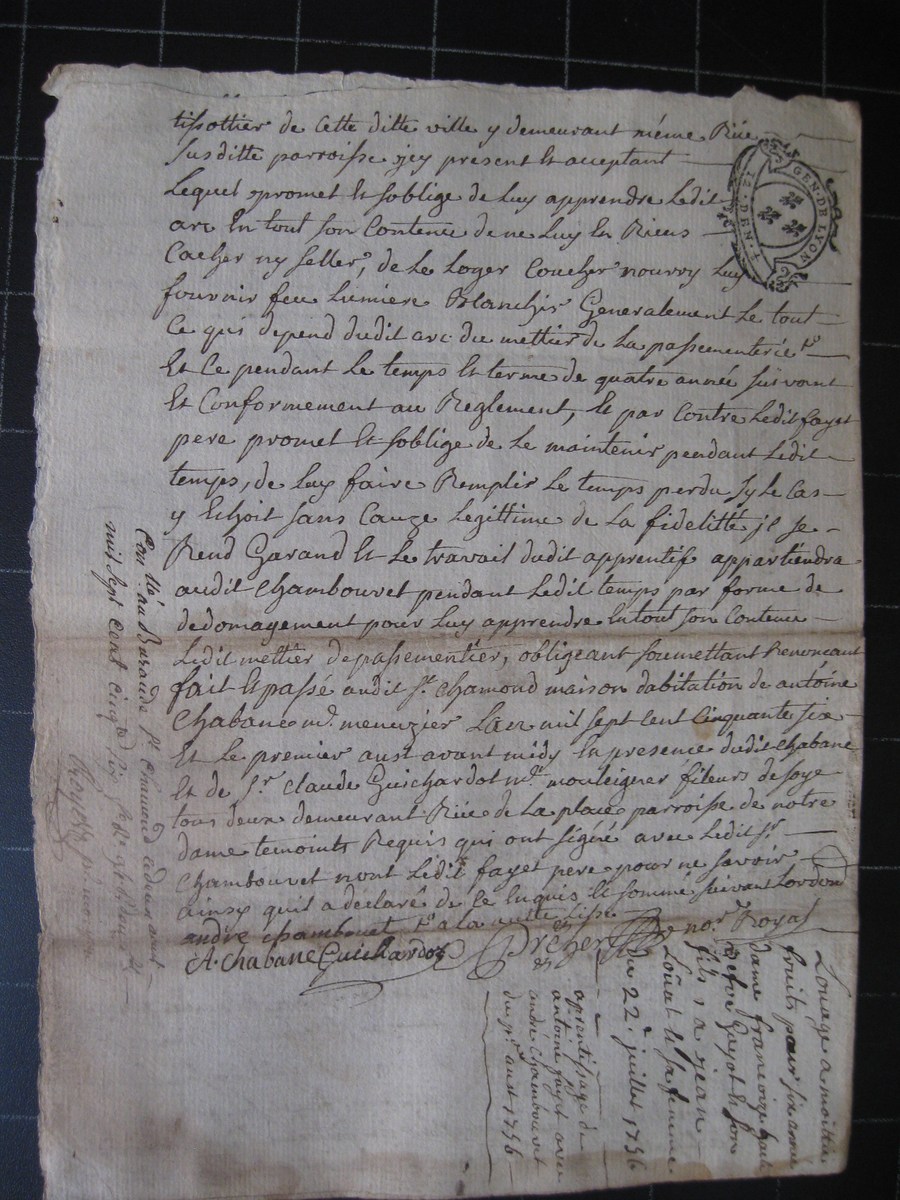 tissottier de cette ditte ville y demeurant méme Rüe
Susditte parroisse jcy present Et acceptant
Lequel promet Et soblige de Luy apprendre Ledit
arc En tout son Contenu de ne Luy En Riens
Cacher ny seller, de Le Loger Coucher nourry Luy
fournir feu Lumiere Blanchir Generalement Le tout
Ce qui depend dudit arc du mettier de La passementerie
Et Ce pendant Le temps Et terme de quatre année suivant
Et Conformement au Reglement, Et par Contre Ledit fayet
pere promet Et soblige de Le maintenir pendant Ledit
temps, de Luy faire Remplir Le temps perdu sy Le Cas
y Echoit sans Cauze Legittime de La fidelitté jl se
Rend Garand Et Le travail dudit apprentif appartiendra
audit Chambouvet pendant Ledit temps par forme de
dedomagement pour Luy apprendre En tout son Contenu
Ledit mettier de passementier, obligeant soumettant Renoncant
fait Et passé audit St. Chamond maison dabitation de antoine
Chabane md. menuzier Lan mil sept Cent Cinquante six
Et Le premier aust avant midy En presence dudit Chabane
Et de Sr. Claude Guichardot md. mouleigner fileurs de soye
tous deux demeurant Rüe de La place parroisse de notre
dame temoints Requis qui ont signé avec Ledit Sr.
Chambouvet nont Ledit fayet pere pour ne savoir
ainsy quil a déclaré de ce Enquis Et sommé suivant Lordon
andre chambouvet a la
A. Chabane Guichardot no.r Royal
GEN. DE LYON
Con.llé au Bureau de St. Chamond
mil sept cent cinq.te six
aprentissage de
antoine fayet avec
andré chambouvet
du p.r aust 1756
Louage a moittié
fruits pour six année
dame francoize
fils a jean
Loüat Et sa femme
du 22.e juillet 1756